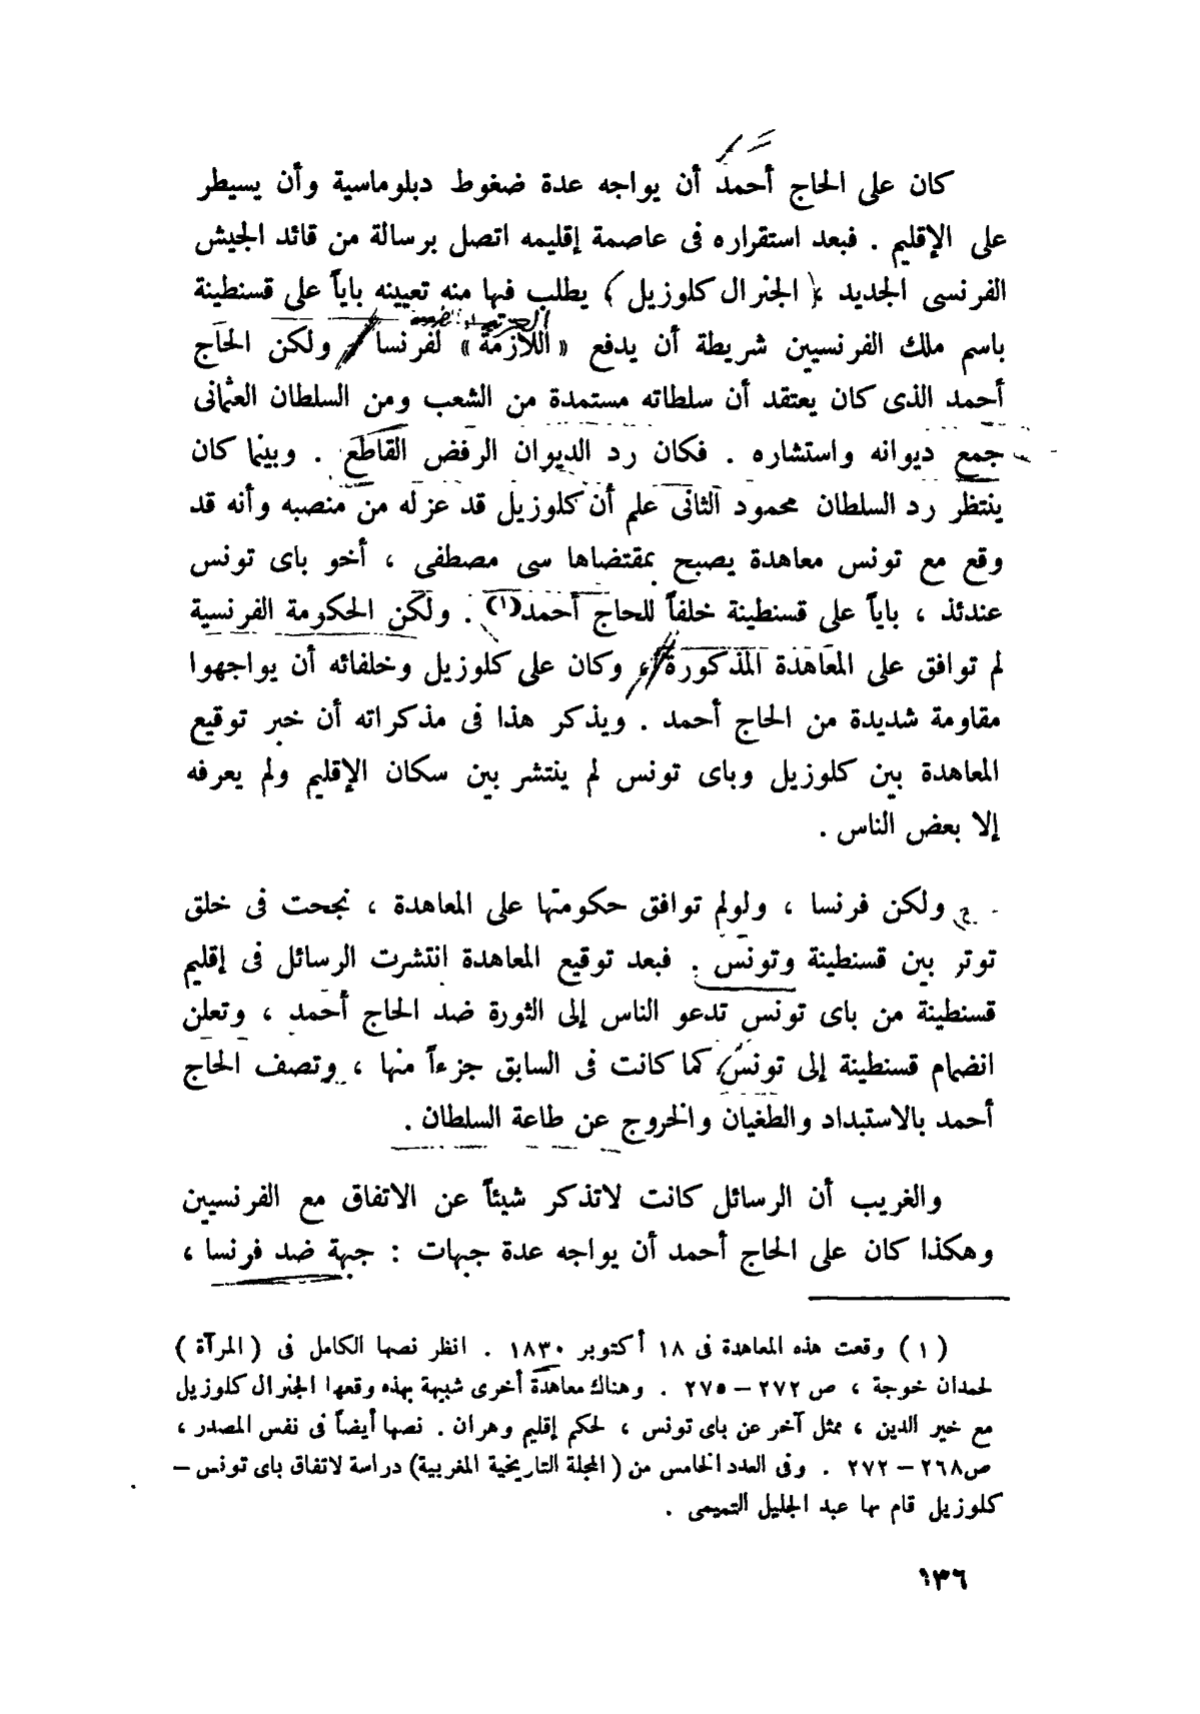 كان على الحاج أحمد أن يواجه عدة ضغوط دبلوماسية وأن يسيطر
على الإقليم . فبعد استقراره فى عاصمة إقليمه اتصل برسالة من قائد الجيش
الفرنسى الجديد ، ( الجنرال كلوزيل ) يطلب فيها منه تعيينه باياً على قسنطينة
باسم ملك الفرنسيين شريطة أن يدفع « اللازمة » لفرنسا ، ولكن الحاج
أحمد الذى كان يعتقد أن سلطاته مستمدة من الشعب ومن السلطان العثمانى
جمع ديوانه واستشاره . فكان رد الديوان الرفض القاطع . وبينما كان
ينتظر رد السلطان محمود الثانى علم أن كلوزيل قد عزله من منصبه وأنه قد
وقع مع تونس معاهدة يصبح بمقتضاها سى مصطفى ، أخو باى تونس
عندئذ ، باياً على قسنطينة خلفاً للحاج أحمد(١) . ولكن الحكومة الفرنسية
لم توافق على المعاهدة المذكورة ، وكان على كلوزيل وخلفائه أن يواجهوا
مقاومة شديدة من الحاج أحمد . ويذكر هذا فى مذكراته أن خبر توقيع
المعاهدة بين كلوزيل وباى تونس لم ينتشر بين سكان الإقليم ولم يعرفه
إلا بعض الناس .
ولكن فرنسا ، ولولم توافق حكومتها على المعاهدة ، نجحت فى خلق
توتر بين قسنطينة وتونس . فبعد توقيع المعاهدة انتشرت الرسائل فى إقليم
قسنطينة من باى تونس تدعو الناس إلى الثورة ضد الحاج أحمد ، وتعلن
انضمام قسنطينة إلى تونس كما كانت فى السابق جزءاً منها ، وتصف الحاج
أحمد بالاستبداد والطغيان والخروج عن طاعة السلطان .
والغريب أن الرسائل كانت لاتذكر شيئاً عن الاتفاق مع الفرنسيين
وهكذا كان على الحاج أحمد أن يواجه عدة جبهات : جبهة ضد فرنسا ،
( ١ ) وقعت هذه المعاهدة فى ١٨ أكتوبر ١٨٣٠ . انظر نصها الكامل فى ( المرآة )
لحمدان خوجة ، ص ٢٧٢ – ٢٧٥ . وهناك معاهدة أخرى شبيهة بهذه وقعها الجنرال كلوزيل
مع خير الدين ، ممثل آخر عن باى تونس ، لحكم إقليم وهران . نصها أيضاً فى نفس المصدر ،
ص٢٦٨ – ٢٧٢ . وفى العدد الخامس من ( المجلة التاريخية المغربية) دراسة لاتفاق باى تونس –
كلوزيل قام بها عبد الجليل التميمى .
١٣٦